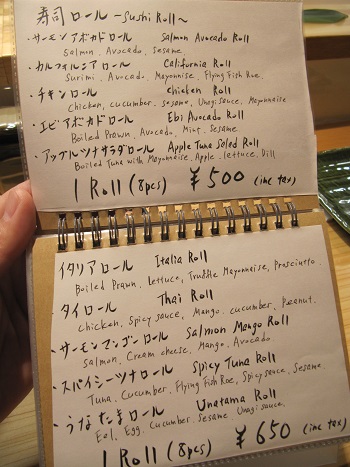 寿司ロール ~Sushi Roll~
・サーモンアボカドロール Salmon Avocado Roll
Salmon, Avocado, Sesame
・カルフォルニアロール California Roll
Surimi, Avocado, Mayonnise, Flying Fish Roe,
・チキンロール Chicken Roll
Chicken, cucumber, sesame, Unagi sauce, Mayonnaise
・エビアボカドロール Ebi Avocado Roll
Boiled Prawn, Avocado, Mint, Sesame
・アップルツナサラダロール Apple Tuna Salad Roll
Boiled Tuna with Mayonnaise, Apple, Lettuce, Dill
1 Roll (8pcs) ¥500 (inc tax)
イタリアロール Italia Roll
Boiled Prawn, Lettuce, Truffle Mayonnaise, Prosciutto
・タイロール Thai Roll
Chicken, Spicy sauce, Mango, cucumber, Peanut,
・サーモンマンゴーロール Salmon Mango Roll
Salmon, Cream cheese, Mango, Avocado,
・スパイシーツナロール Spicy Tuna Roll
Tuna, Cucumber, Flying Fish Roe, Spicy sauce, Sesame
・うなたまロール Unatama Roll
Eel, Egg, Cucumber, Sesame Unagi sauce,
1 Roll (8pcs) ¥650 (inc tax)